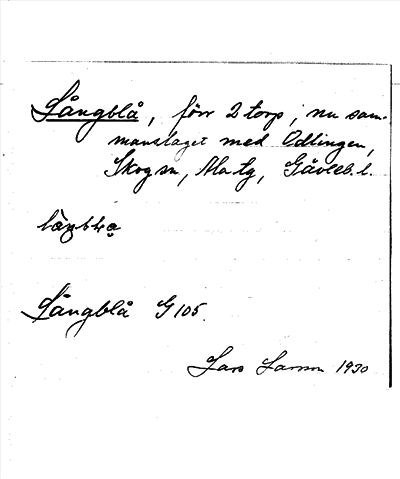 Långblå, förr 2 torp, nu sam-
manslaget med Odlingen,
Skog sn, Ala tg, Gävleb. l.
Långblå G 105.
Lars Larsson 1930